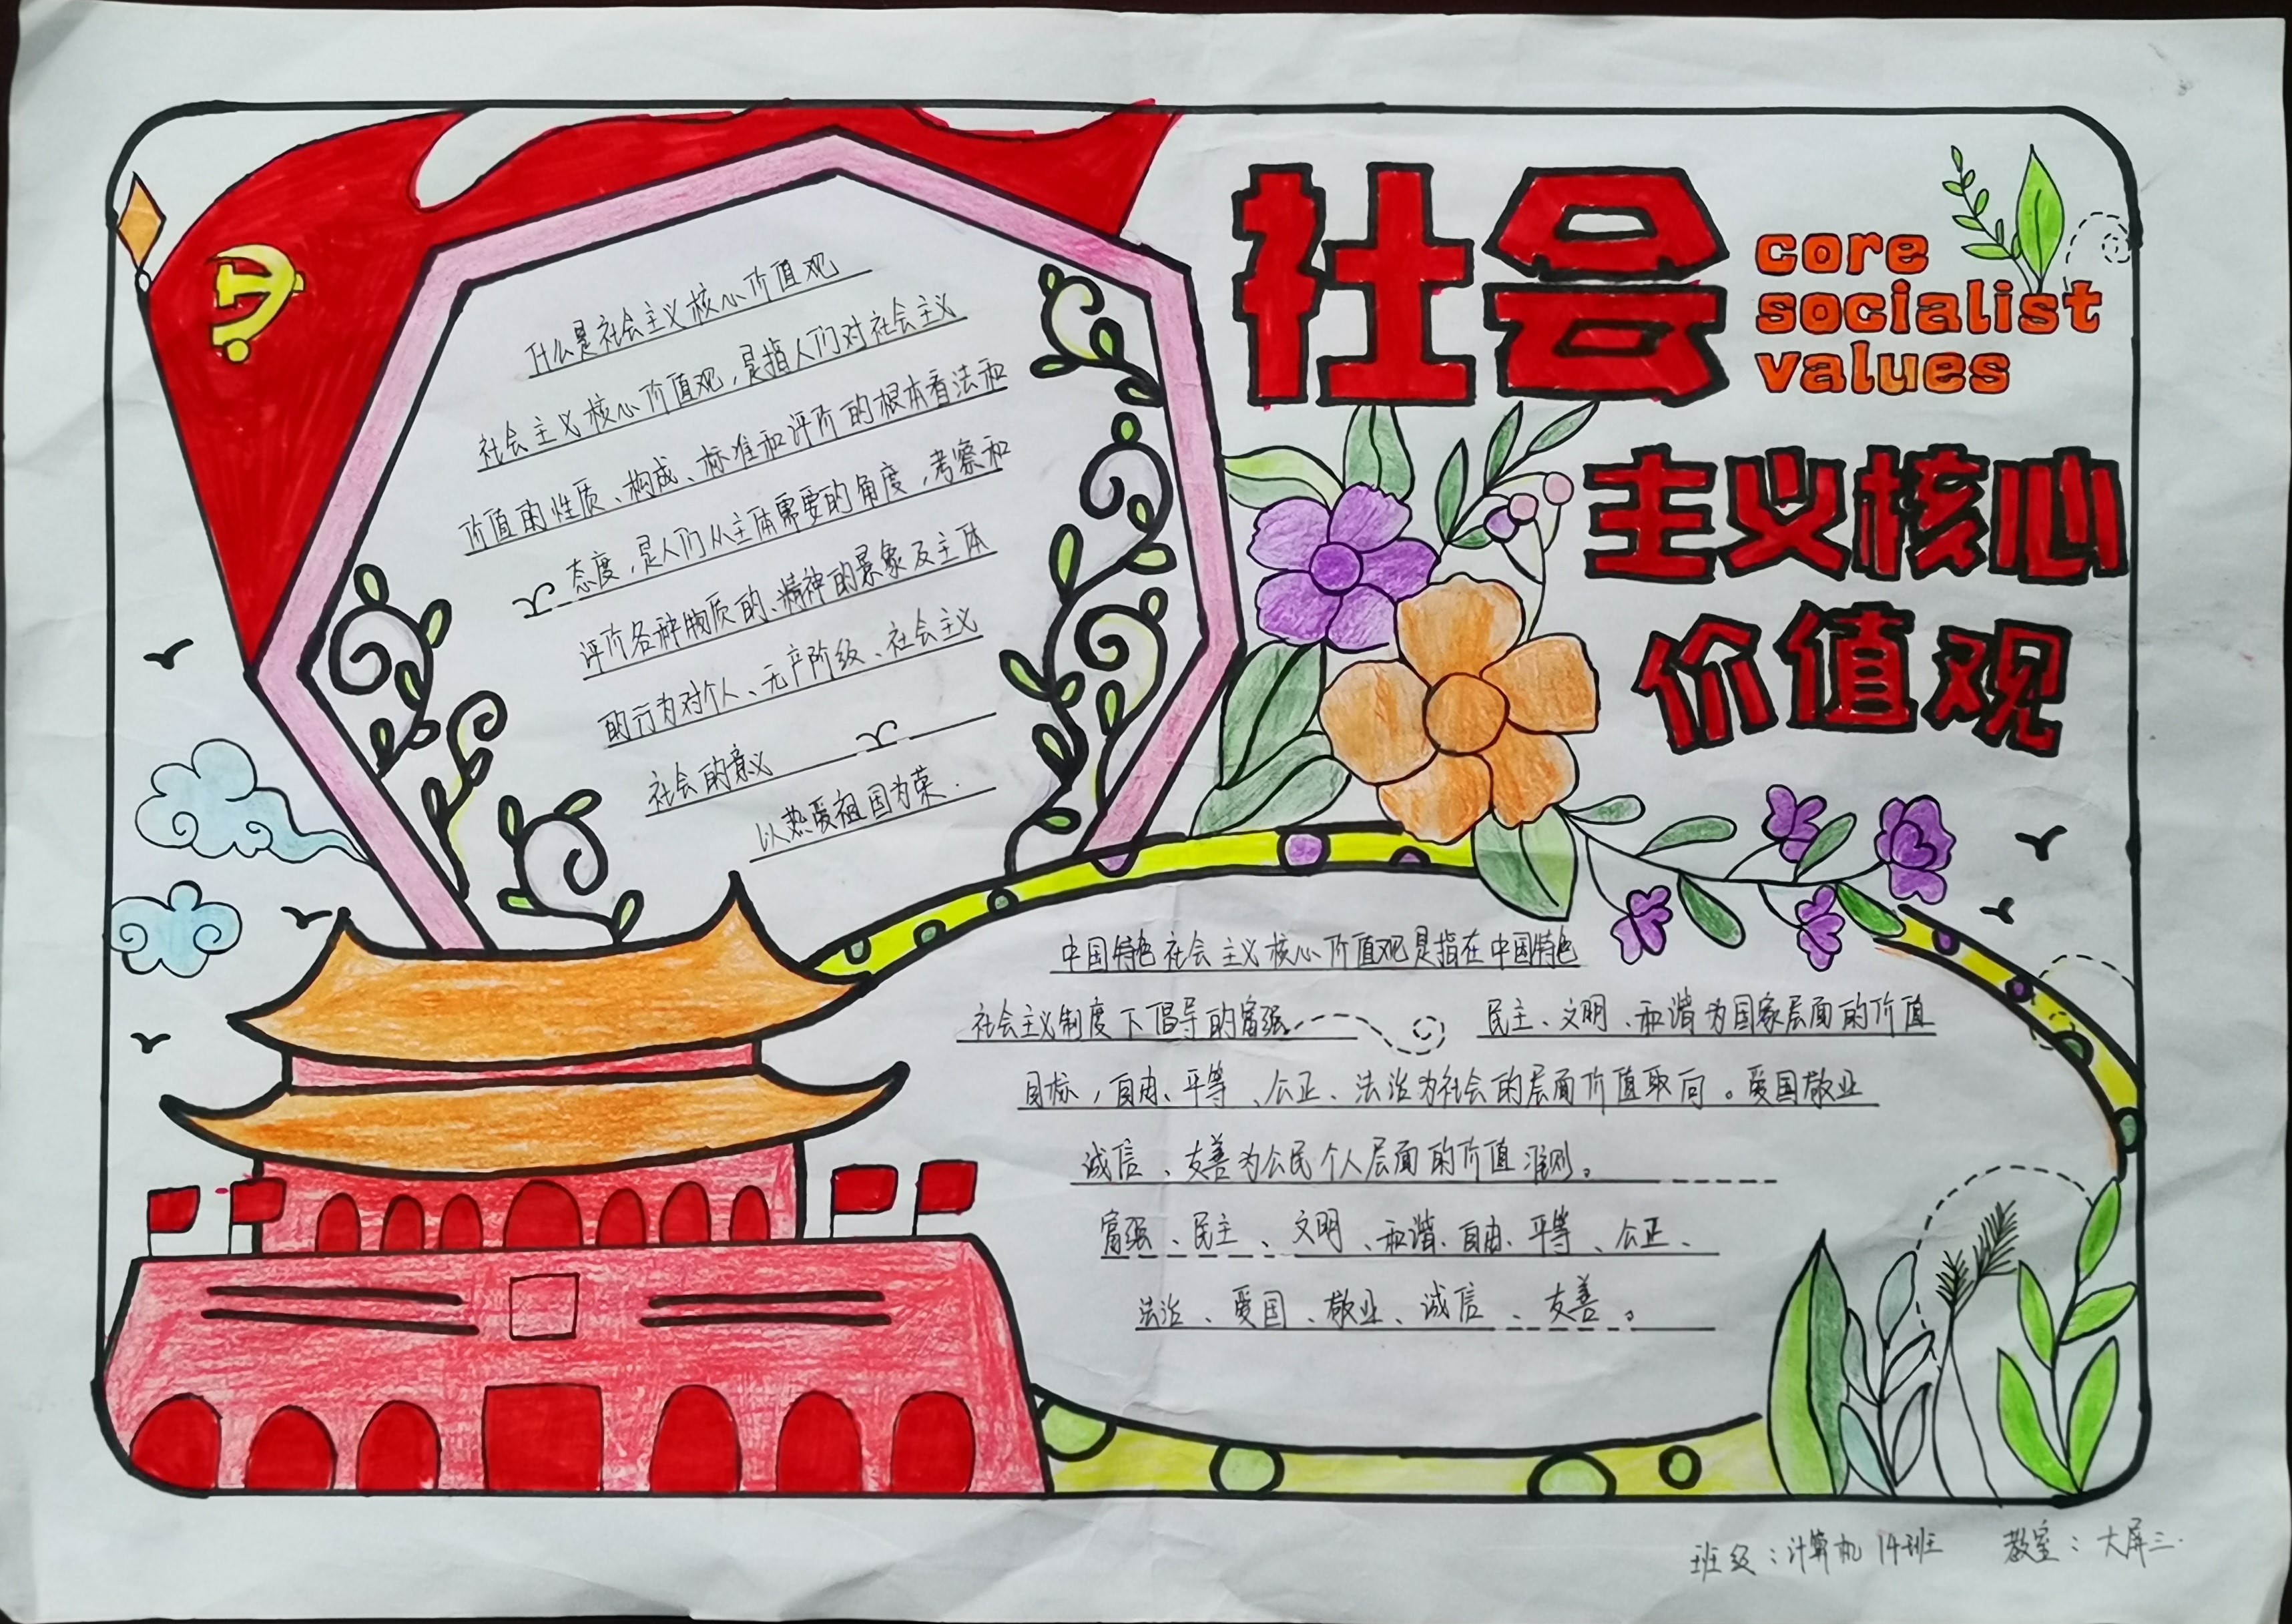 什么是社会主义核心价值观
社会主义核心价值观，是指人们对社会主义
价值的性质、构成、标准和评价的根本看法和
态度，是人们从主体需要的角度，考察和
评价各种物质的、精神的景象及主体
的行为对个人、无产阶级、社会主义
社会的意义
以热爱祖国为荣.
社会
core
socialist
values
主义核心
价值观
中国特色社会主义核心价值观是指在中国特色
社会主义制度下倡导的富强 民主、文明、和谐为国家层面的价值
目标，自由、平等、公正、法治为社会的层面价值取向。爱国敬业
诚信、友善为公民个人层面的价值准则。
富强、民主、文明、和谐、自由、平等、公正、
法治、爱国、敬业、诚信、友善。
班级：计算机14班 教室：大屏三.